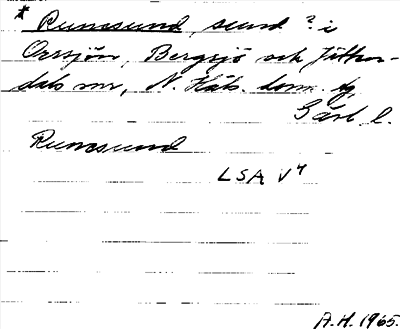 * Runesund, sund ? i
Orrsjön, Bergsjö och Jättendals snr, N. Häls. doms. fg,
Gävl. l.
Runesund
LSA V4
A.H. 1965.